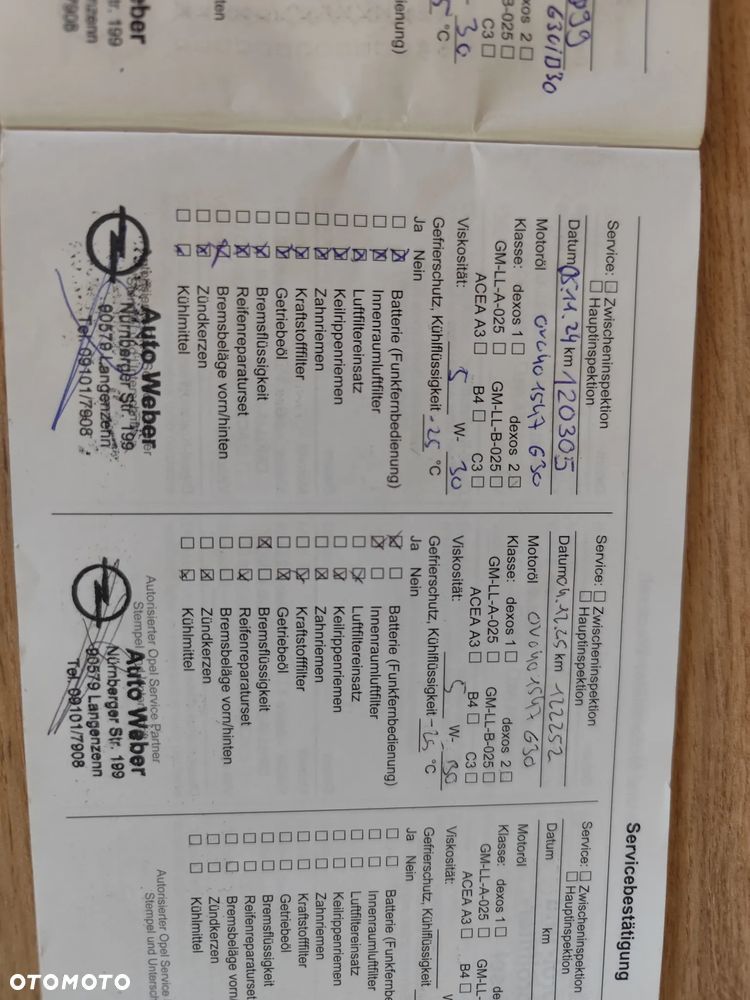 Servicebestätigung
099
630/D30
exos 2
B-025
C3
30
°C
dienung)
ten
eber
tr. 199
genzenn
/7908
Service: Zwischeninspektion
Hauptinspektion
Datum 05.11.24 km 120305
Motoröl OVO401547 G30
Klasse: dexos 1 dexos 2
GM-LL-A-025 GM-LL-B-025
ACEA A3 B4 C3
Viskosität: 5 W- 30
Gefrierschutz, Kühlflüssigkeit -25 °C
Ja Nein
Batterie (Funkfernbedienung)
Innenraumluftfilter
Luftfiltereinsatz
Keilrippenriemen
Zahnriemen
Kraftstofffilter
Getriebeöl
Bremsflüssigkeit
Reifenreparaturset
Bremsbeläge vorn/hinten
Zündkerzen
Kühlmittel
Auto Weber
Nürnberger Str. 199
90579 Langenzenn
Tel. 09101/7908
Service: Zwischeninspektion
Hauptinspektion
Datum 04.12.25 km 122252
Motoröl OVO401547 G30
Klasse: dexos 1 dexos 2
GM-LL-A-025 GM-LL-B-025
ACEA A3 B4 C3
Viskosität: 5 W- 30
Gefrierschutz, Kühlflüssigkeit -25 °C
Ja Nein
Batterie (Funkfernbedienung)
Innenraumluftfilter
Luftfiltereinsatz
Keilrippenriemen
Zahnriemen
Kraftstofffilter
Getriebeöl
Bremsflüssigkeit
Reifenreparaturset
Bremsbeläge vorn/hinten
Zündkerzen
Kühlmittel
Autorisierter Opel Service Partner
Auto Weber
Nürnberger Str. 199
90579 Langenzenn
Tel. 09101/7908
Service: Zwischeninspektion
Hauptinspektion
Datum km
Motoröl
Klasse: dexos 1 de
GM-LL-A-025 GM-LL-
ACEA A3 B4
Viskosität:
Gefrierschutz, Kühlflüssigkeit
Ja Nein
Batterie (Funkfernbe
Innenraumluftfilter
Luftfiltereinsatz
Keilrippenriemen
Zahnriemen
Kraftstofffilter
Getriebeöl
Bremsflüssigkeit
Reifenreparaturset
Bremsbeläge vorn/
Zündkerzen
Kühlmittel
Autorisierter Opel Service
Stempel und Untersch
OTOMOTO